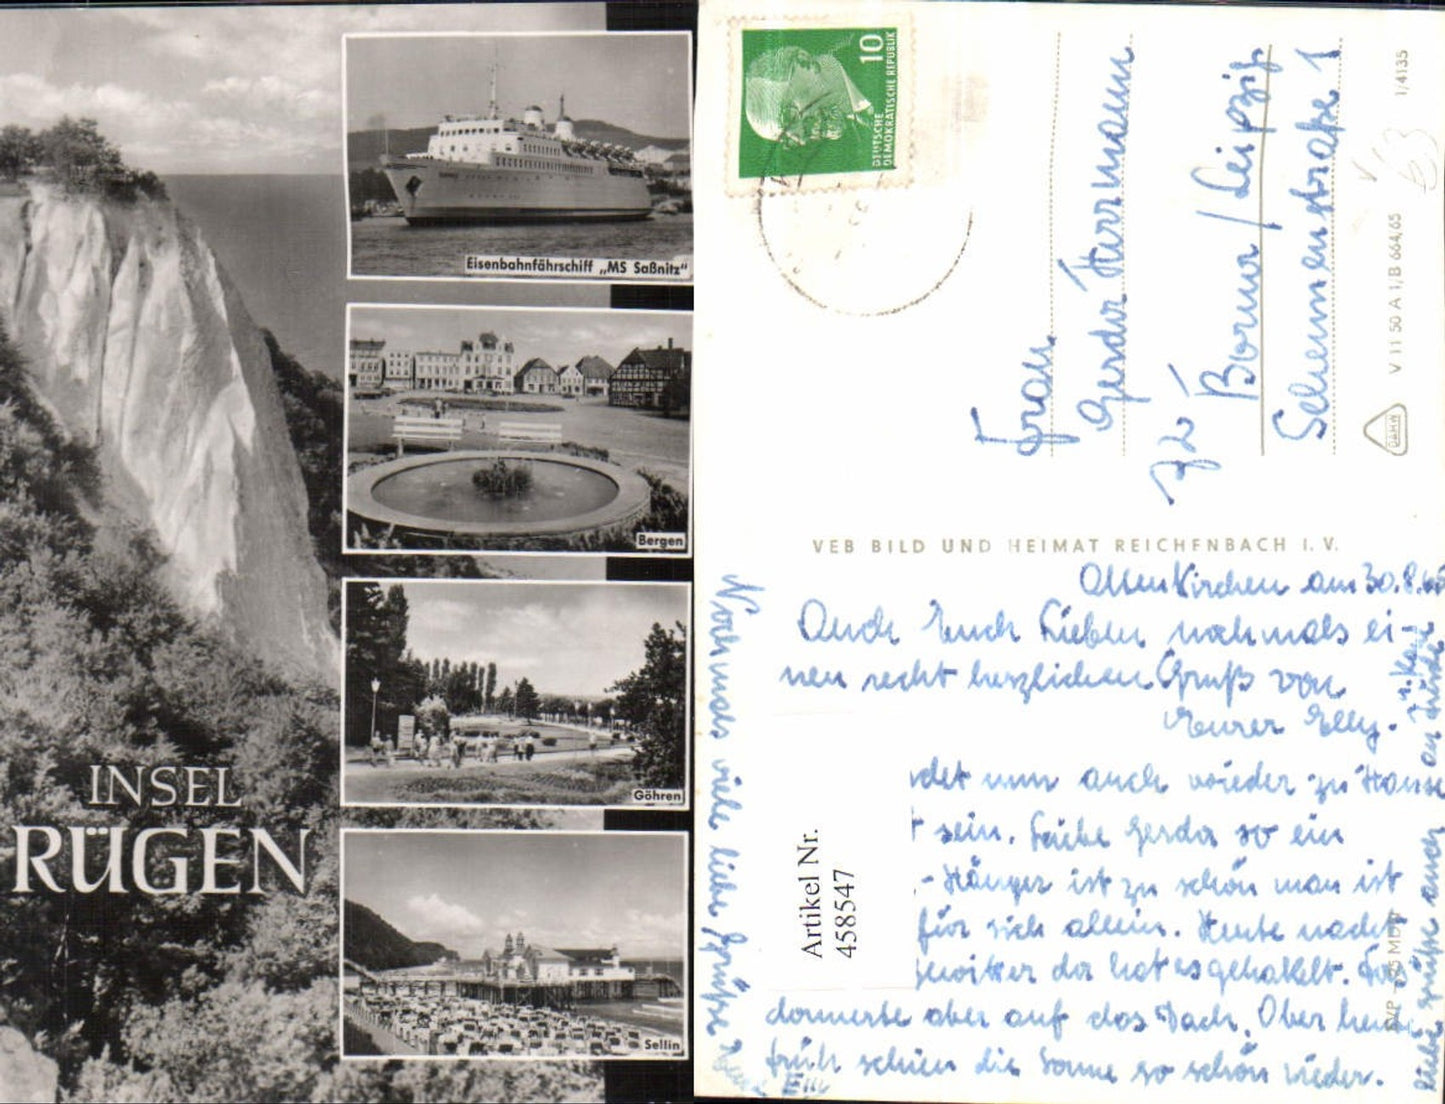 Eisenbahnfährschiff „MS Saßnitz"
Bergen
Göhren
Sellin
INSEL
RÜGEN
10
DEUTSCHE
DEMOKRATISCHE REPUBLIK
Frau
Gerda Herrmann
Borna / Leipzig
1/4135
V 11 50 A 1/B 664/65
VEB BILD UND HEIMAT REICHENBACH I. V.
Altenkirchen am 30.8.
Auch Euch Lieben nochmals ei-
nen recht herzlichen Gruß von
Eurer Elly.
det nun auch wieder zu Hause
sein. Liebe Gerda so ein
-Hänger ist zu schön man ist
für sich allein. Heute nacht
gewitter da hat es gehakelt. Das
donnerte aber auf das Dach. Aber heute
früh schien die Sonne so schön wieder.
Nochmals viele liebe Grüße
Artikel Nr.
458547